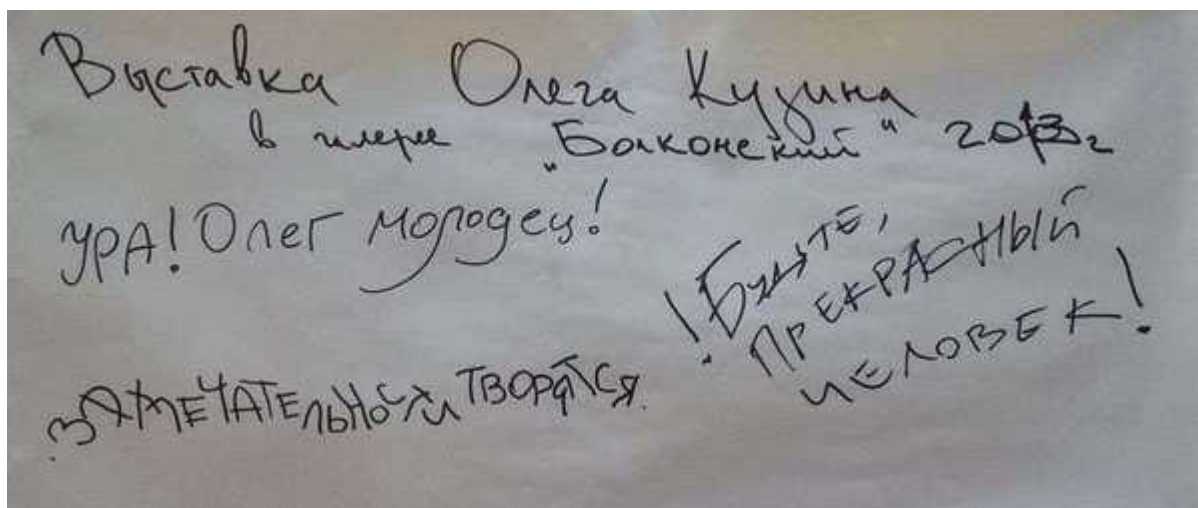 Выставка Олега Кузина
в „Болконский“ 2013г
УРА! Олег молодец!
! БУДЬТЕ,
ПРЕКРАСНЫЙ
ЧЕЛОВЕК!
ЗАМЕЧАТЕЛЬНОСТИ ТВОРЯТСЯ.